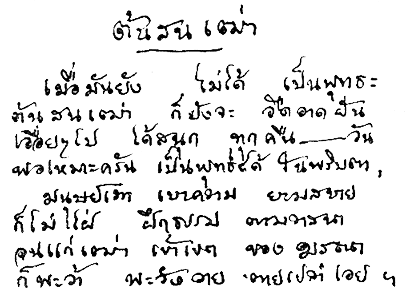 ต้นสนเฒ่า
เมื่อมันยัง ไม่ได้ เป็นพุทธะ
ต้นสนเฒ่า ก็ยังจะ อืดอาด ฝัน
เรื่อยๆไป ได้สนุก ทุกคืน วัน
พอเหมาะครัน เป็นพุทธะได้ ในพริบตา,
มนุษย์เรา เบาความ ยามสบาย
ก็ไม่ใฝ่ ฝึกธรรม ตามวาสนา
จนแก่เฒ่า เข้าเขต ของ มรณา
ก็พะว้า พะวังวาย ตายเปล่าเอย ฯ